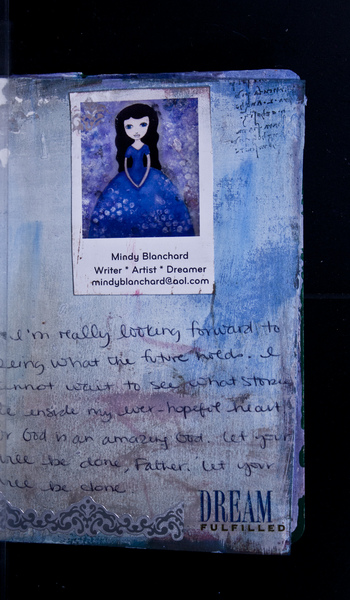 Mindy Blanchard
Writer * Artist * Dreamer
mindyblanchard@aol.com
I'm really looking forward to
what the future holds. I
want to see what stories
inside my ever-hopeful heart
God is an amazing God. Let your
be done, Father. Let your
be done
DREAM
FULFILLED